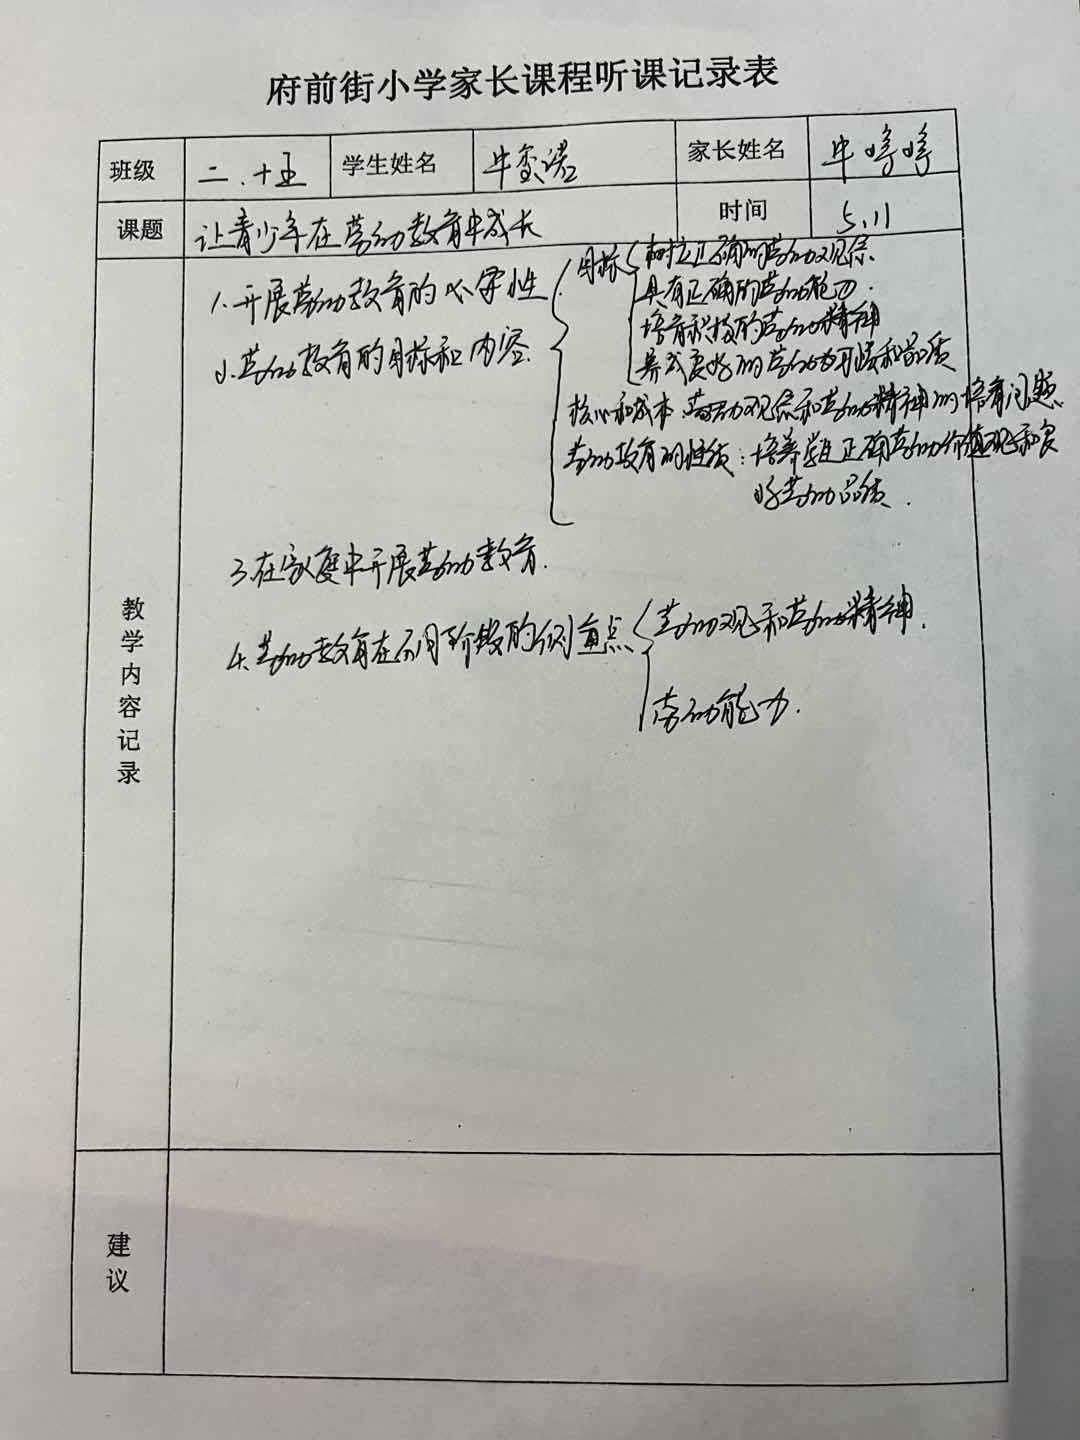 府前街小学家长课程听课记录表
班级 二.十五 学生姓名 牛奕诺 家长姓名 牛哼哼
课题 让青少年在劳动教育中成长 时间 5.11
教学内容记录
1.开展劳动教育的必要性
2.劳动教育的目标和内容
目标 树立正确的劳动观念
具有正确的劳动能力.
培育积极的劳动精神
养成良好的劳动习惯和品质
核心和成本:劳动观念和劳动精神的培育问题
劳动教育的性质:培养学生正确劳动价值观和良
好劳动品质.
3.在家庭中开展劳动教育.
4.劳动教育在不同阶段的侧重点
劳动观和劳动精神.
劳动能力.
建议